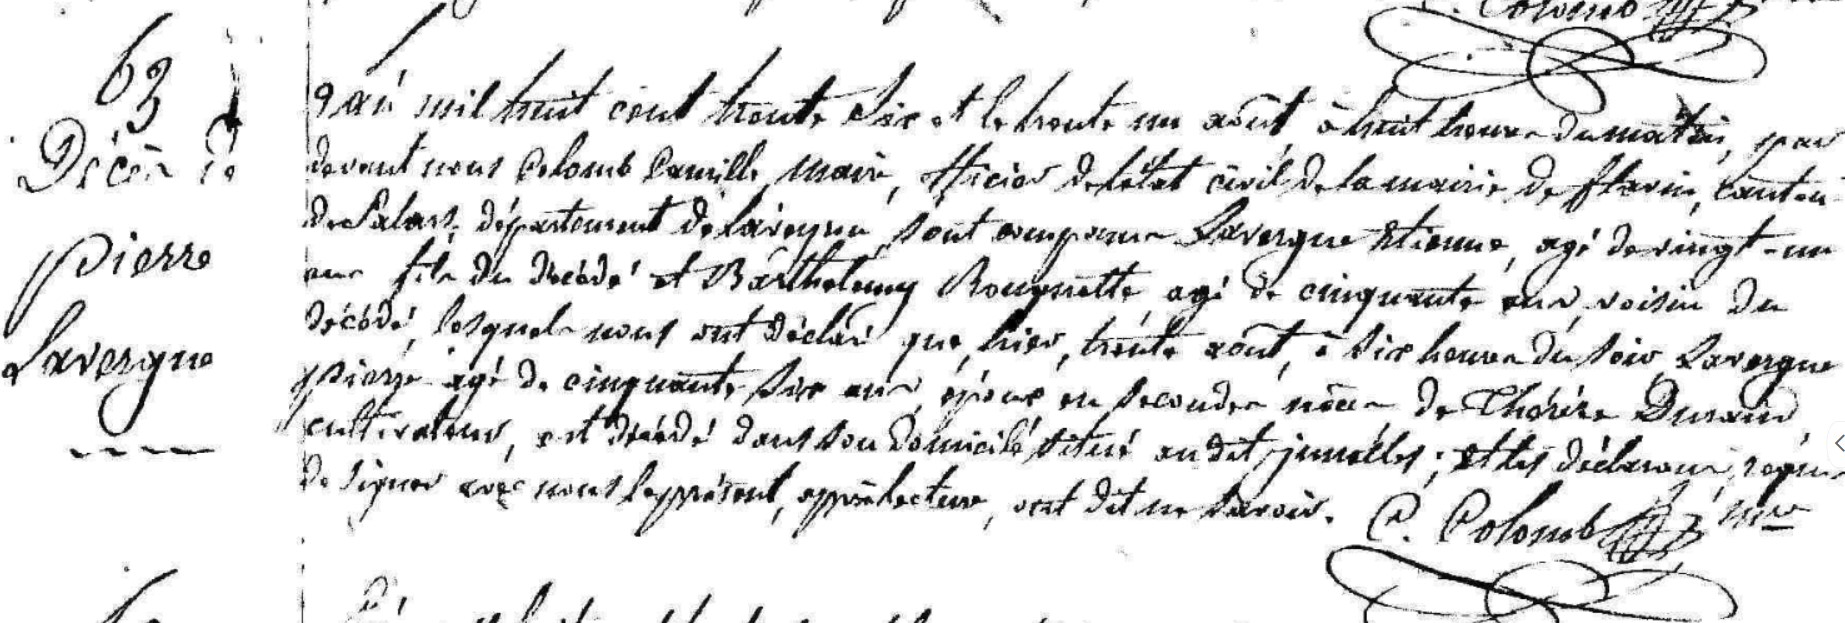 C. Colomb
63
Décès de
pierre
Lavergne
L'an mil huit cent trente six et le trente un août, à huit heures du matin, par
devant nous Colomb Camille, maire, officier de l'état civil de la mairie de flavin, canton
de Salars, département de l'aveyron, sont comparus Lavergne étienne, agé de vingt-un
ans fils du décédé et Barthelemy Rouquette, agé de cinquante ans, voisin du
décédé, lesquels nous ont déclaré que, hier, trente août, à six heures du soir, Lavergne
pierre agé de cinquante six ans, époux en secondes nôces de Thérèze Durand,
cultivateur, est décédé dans son domicile situé audit ; et les déclarans, requis
de signer avec nous le présent, après lecture, ont dit ne savoir. C. Colomb mre